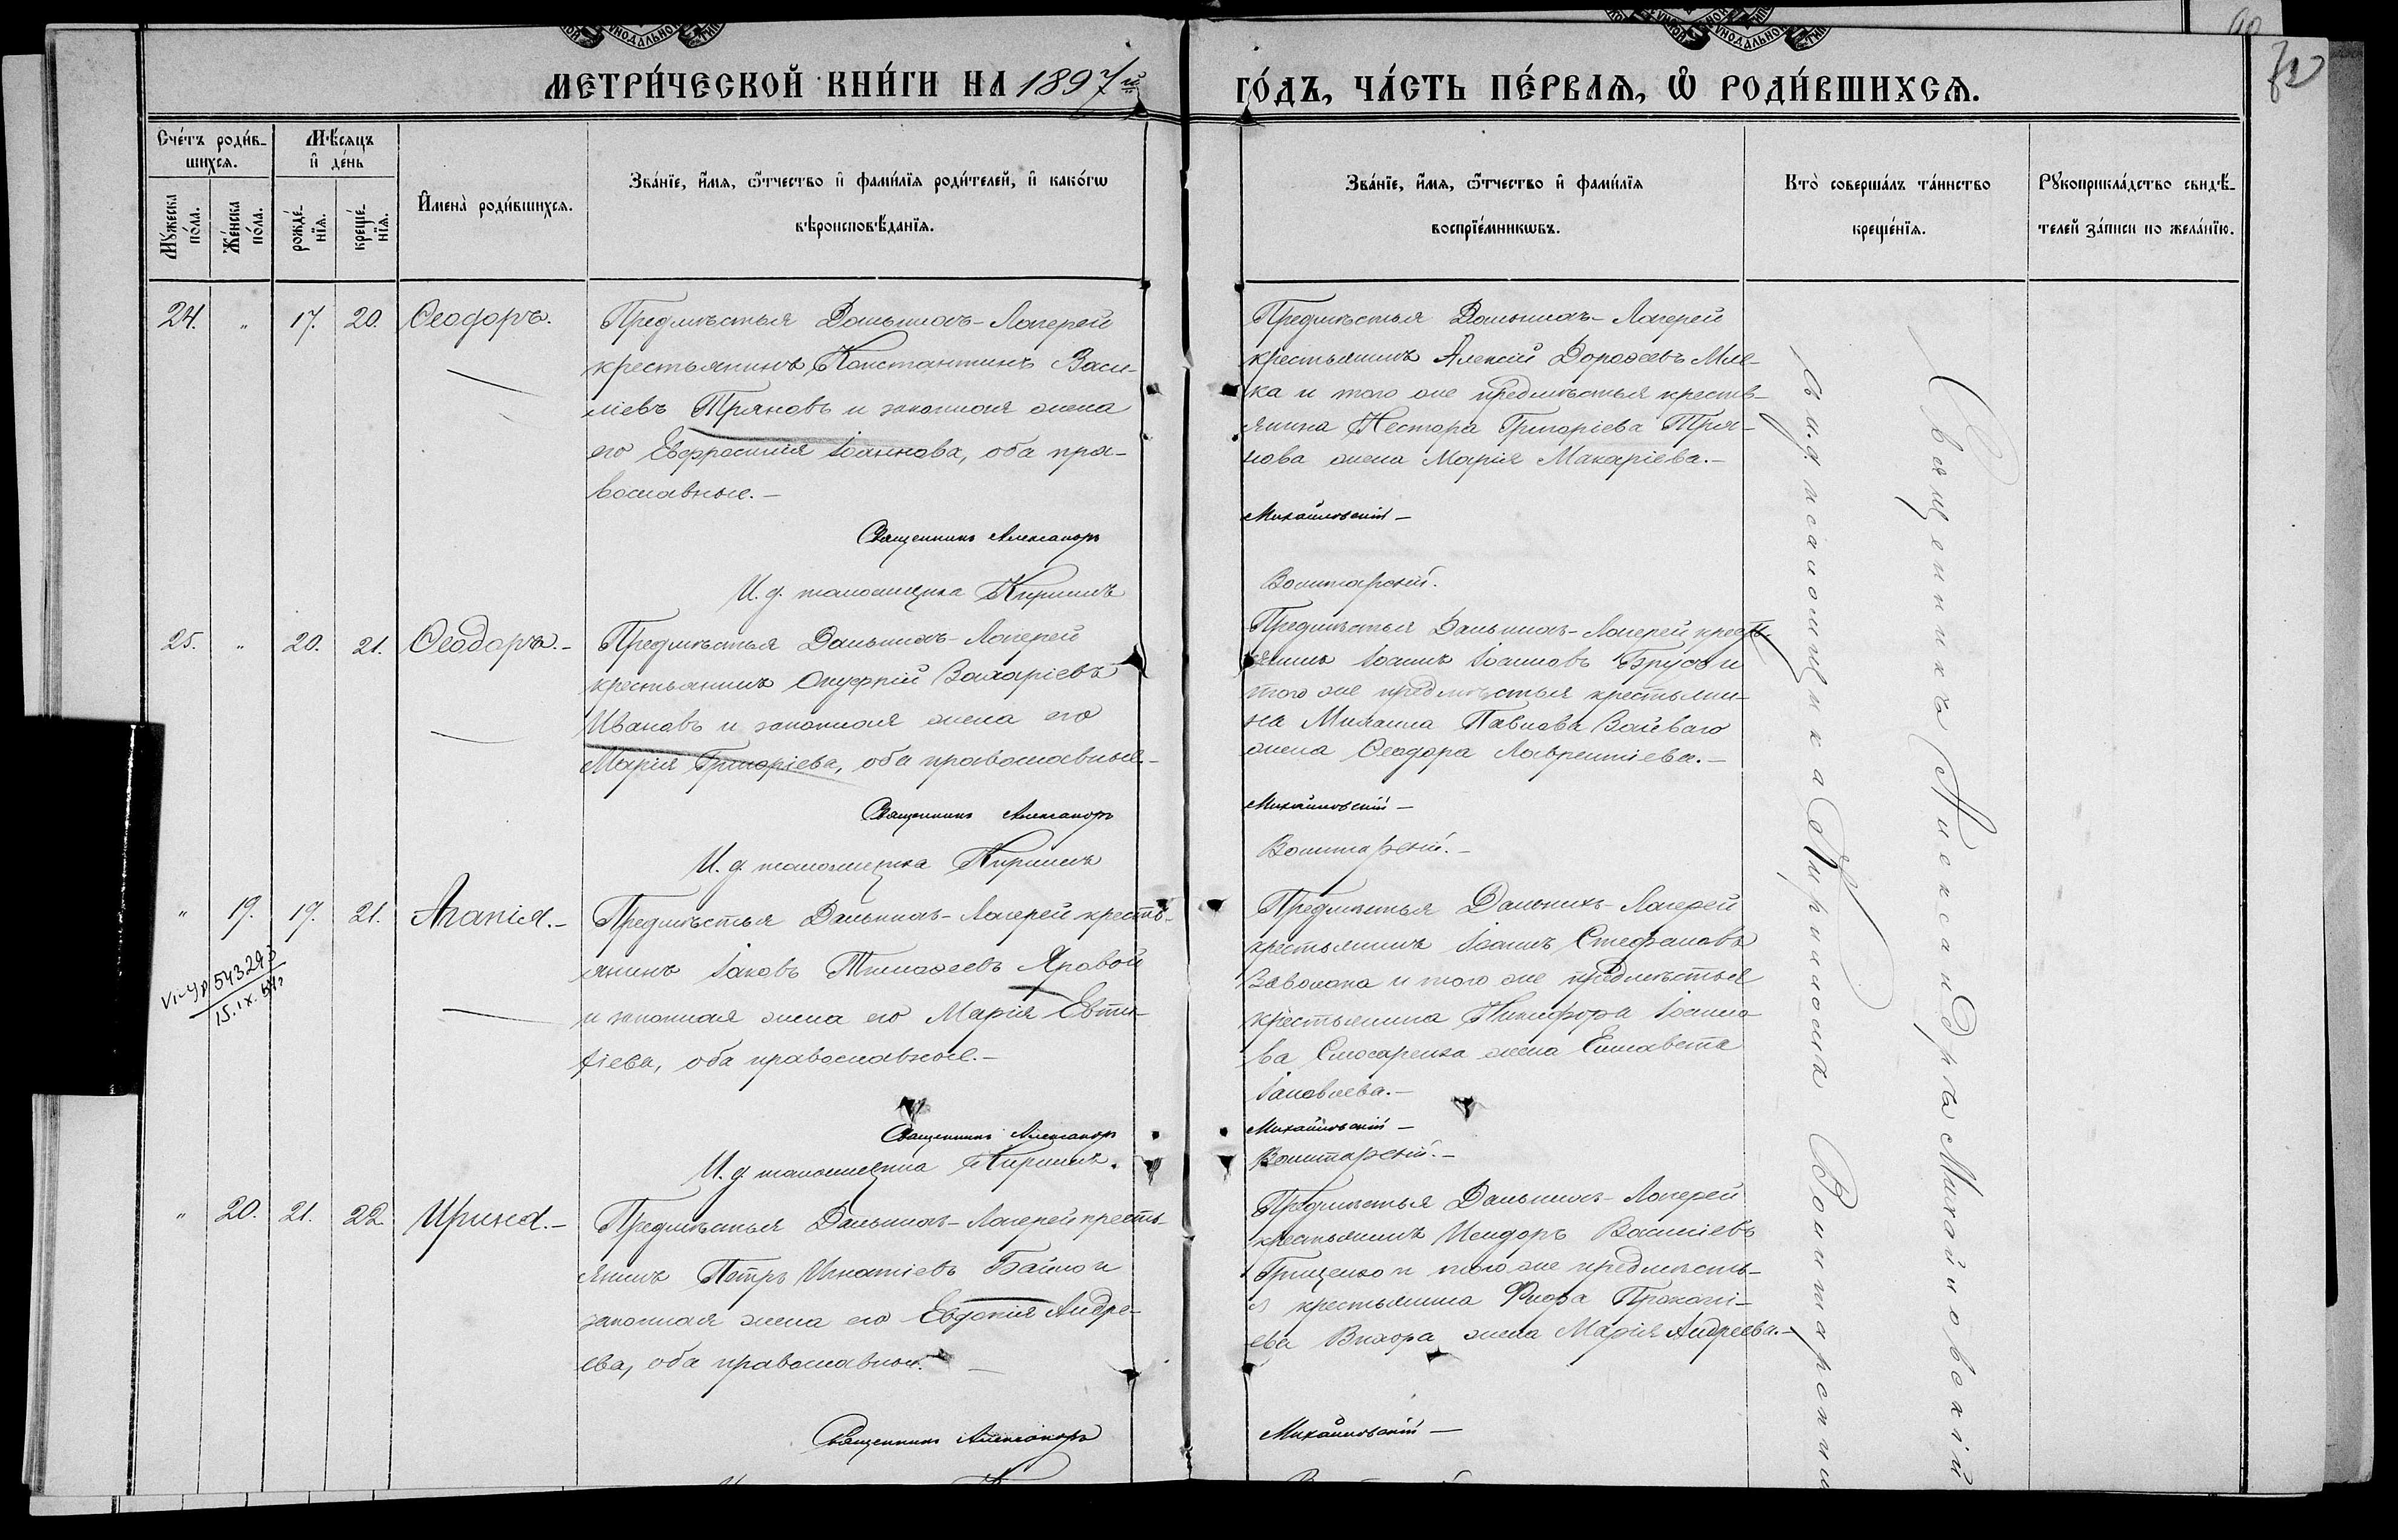 МЕТРИ́ЧЕСКОЙ КНИ́ГИ НА 1897й
ГО́ДЪ, ЧА́СТЬ ПЕ́РВАѦ, Ѡ҆ РОДИ́ВШИХСѦ.
72
Сче́тъ роди́в-
шихсѧ.
Мѣ́сѧцъ
и҆ де́нь
Мꙋ́жеска
по́ла.
Же́нска
по́ла.
рожде́-
нїѧ.
креще́-
нїѧ.
И҆мена̀ роди́вшихсѧ.
Зва́нїе, и҆́мѧ, ѻ҆́тчество и҆ фами́лїѧ роди́телей, и҆ како́гѡ
вѣроисповѣ́данїѧ.
Зва́нїе, и҆́мѧ, ѻ҆́тчество и҆ фами́лїѧ
воспрїе́мникѡвъ.
Кто̀ соверша́лъ та́инство
креще́нїѧ.
Рꙋкоприкла́дство свидѣ́-
телей за́писи по жела́нїю.
24. " 17. 20. Ѳеодоръ.
Предмѣстья Дальнихъ-Лагерей
крестьянинъ Константинъ Васи-
ліевъ Пряновъ и законная жена
его Евфросинія Іоаннова, оба пра-
вославные.-
Священникъ Александръ
И. д. псаломщика Кириллъ
Предмѣстья Дальнихъ-Лагерей
крестьянинъ Алексій Дороѳеевъ Мле-
ка и того же предмѣстья кресть-
янина Нестора Григоріева Пря-
нова жена Марія Макаріева.-
Михайловскій-
Волитарскій.
25. " 20. 21. Ѳеодоръ.-
Предмѣстья Дальнихъ-Лагерей
крестьянинъ Онуфрій Захаріевъ
Ивановъ и законная жена его
Марія Григоріева, оба православные.-
Священникъ Александръ
И. д. псаломщика Кириллъ
Предмѣстья Дальнихъ-Лагерей кресть-
янинъ Іоаннъ Іоанновъ Брусъ и
того же предмѣстья крестьяни-
на Михаила Павлова
жена Ѳеодора Лаврентіева.-
Михайловскій-
Волитарскій.-
" 19. 19. 21. Агапія.-
543293
15.IX.
Предмѣстья Дальнихъ-Лагерей кресть-
янинъ Іаковъ Тимоѳеевъ Яровой
и законная жена его Марія Евти-
хіева, оба православные.-
Священникъ Александръ
И. д. псаломщика Кириллъ.
Предмѣстья Дальнихъ-Лагерей
крестьянинъ Іоаннъ Стефановъ
Заволока и того же предмѣстья
крестьянина Никифора Іоанно-
ва Слюсаренка жена Елисавета
Іаковлева.-
Михайловскій-
Волитарскій.-
" 20. 21. 22. Ирина.-
Предмѣстья Дальнихъ-Лагерей кресть-
янинъ Петръ Игнатіевъ Байло и
законная жена его Евдокія Андре-
ева, оба православные.-
Священникъ Александръ
Предмѣстья Дальнихъ-Лагерей
крестьянинъ Исидоръ Василіевъ
Грищенко и того же предмѣсть-
я крестьянина Флора Прокопі-
ева Вихора жена Марія Андреева.-
Михайловскій-
Священникъ Александръ Михайловскій
съ и. д. псаломщика Кирилломъ